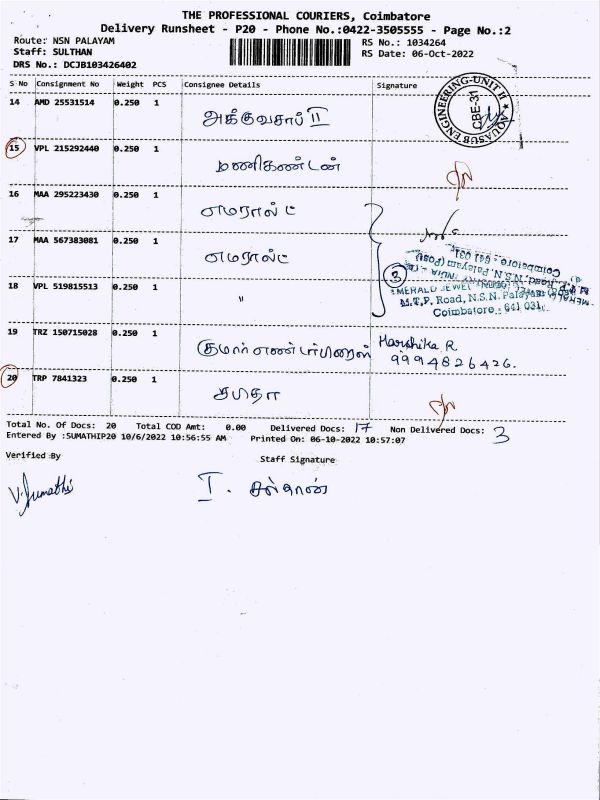 THE PROFESSIONAL COURIERS, Coimbatore
Delivery Runsheet - P20 - Phone No.:0422-3505555 - Page No.:2
Route: NSN PALAYAM
RS No.: 1034264
Staff: SULTHAN
RS Date: 06-Oct-2022
DRS No.: DCJB103426402
S No Consignment No Weight PCS Consignee Details Signature
14 AMD 25531514 0.250 1 அக்குவசாப் II
AQUASUB ENGINEERING-UNIT II
CBE-31
15 VPL 215292440 0.250 1 மணிகண்டன்
16 MAA 295223430 0.250 1 எமரால்ட்
17 MAA 567383081 0.250 1 எமரால்ட்
18 VPL 519815513 0.250 1 "
3
M.T.P. Road, N.S.N. Palayam
Coimbatore - 641 031
19 TRZ 150715028 0.250 1 குமார் Harshika R
9994826426.
20 TRP 7841323 0.250 1
Total No. Of Docs: 20 Total COD Amt: 0.00 Delivered Docs: 17 Non Delivered Docs: 3
Entered By :SUMATHIP20 10/6/2022 10:56:55 AM Printed On: 06-10-2022 10:57:07
Verified By Staff Signature
V. Sumathi I. சுல்தான்